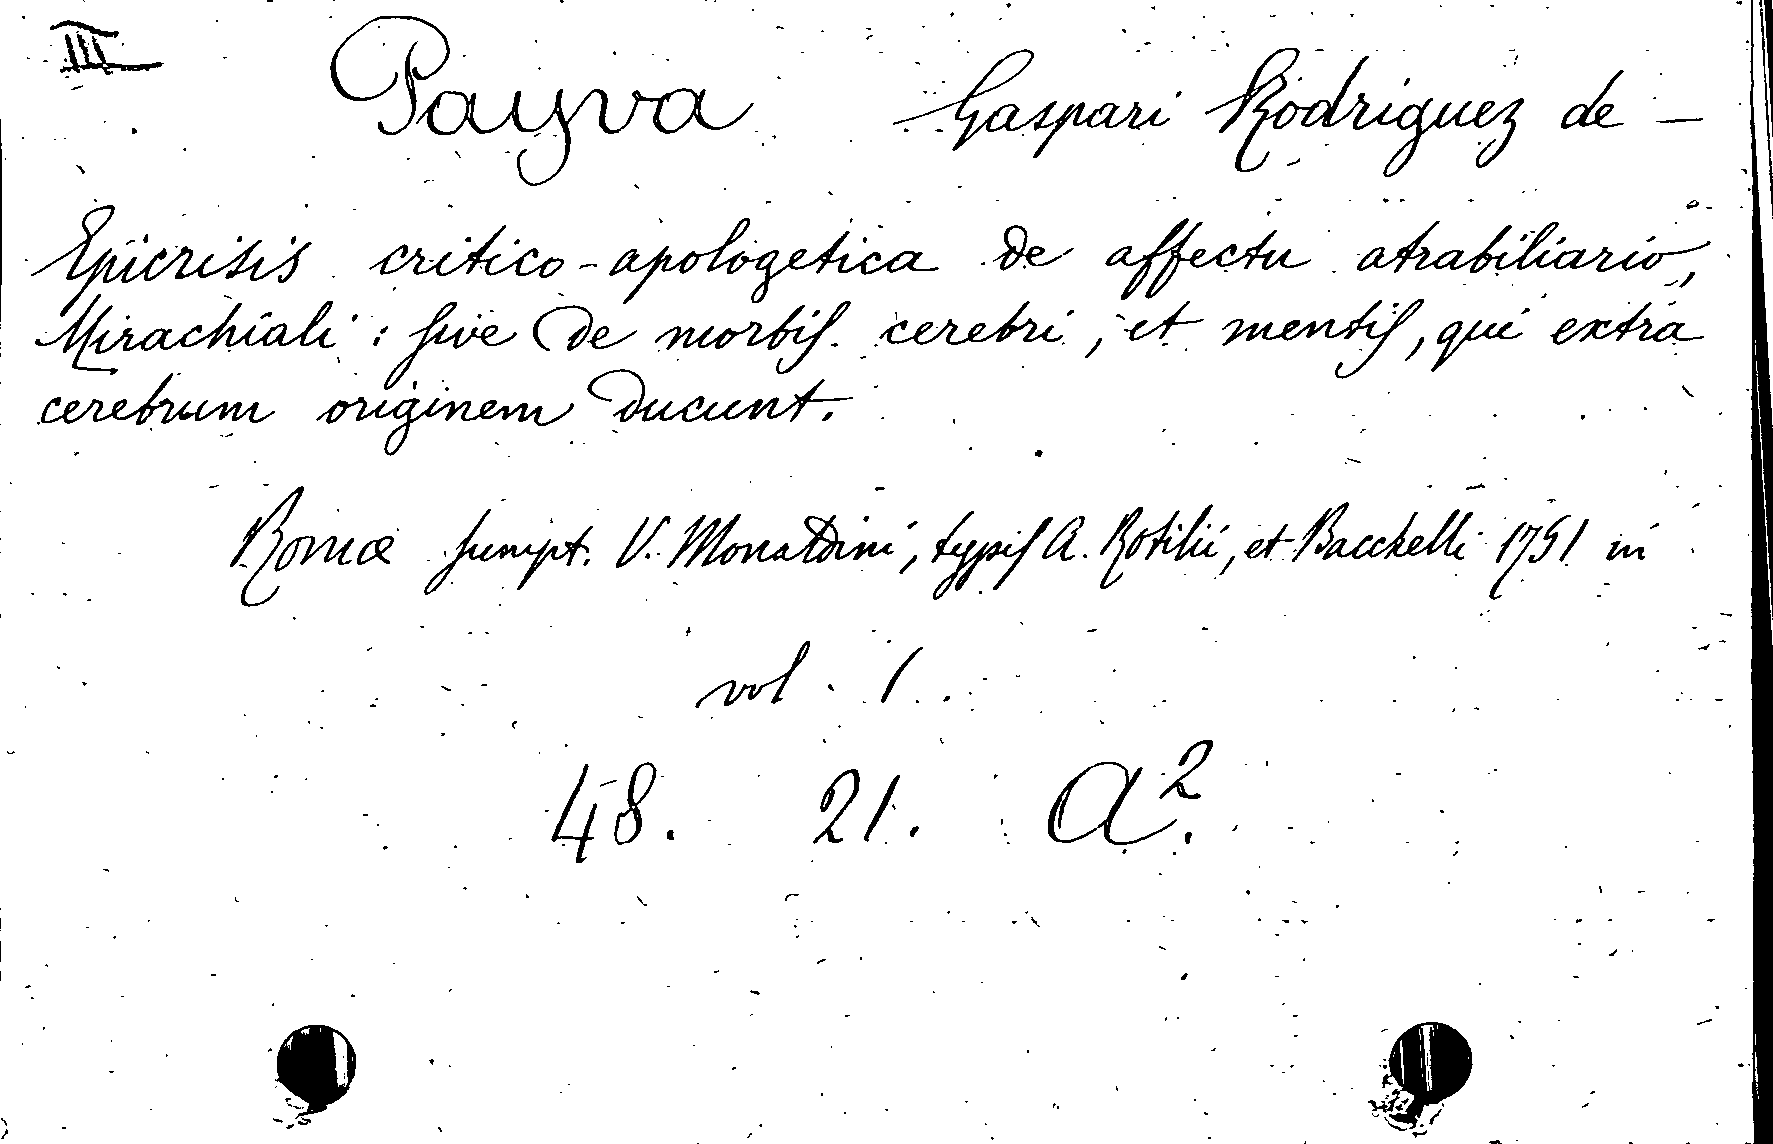 III
Payva Gaspari Rodriguez de —
Epicrisis critico-apologetica de affectu atrabiliario,
Mirachiali: sive de morbis cerebri, et mentis, qui extra
cerebrum originem ducunt.
Romæ sumpt. V. Monaldini, typis A. Rotilii, et Bacchelli 1751 in
vol. 1.
48. 21. A².